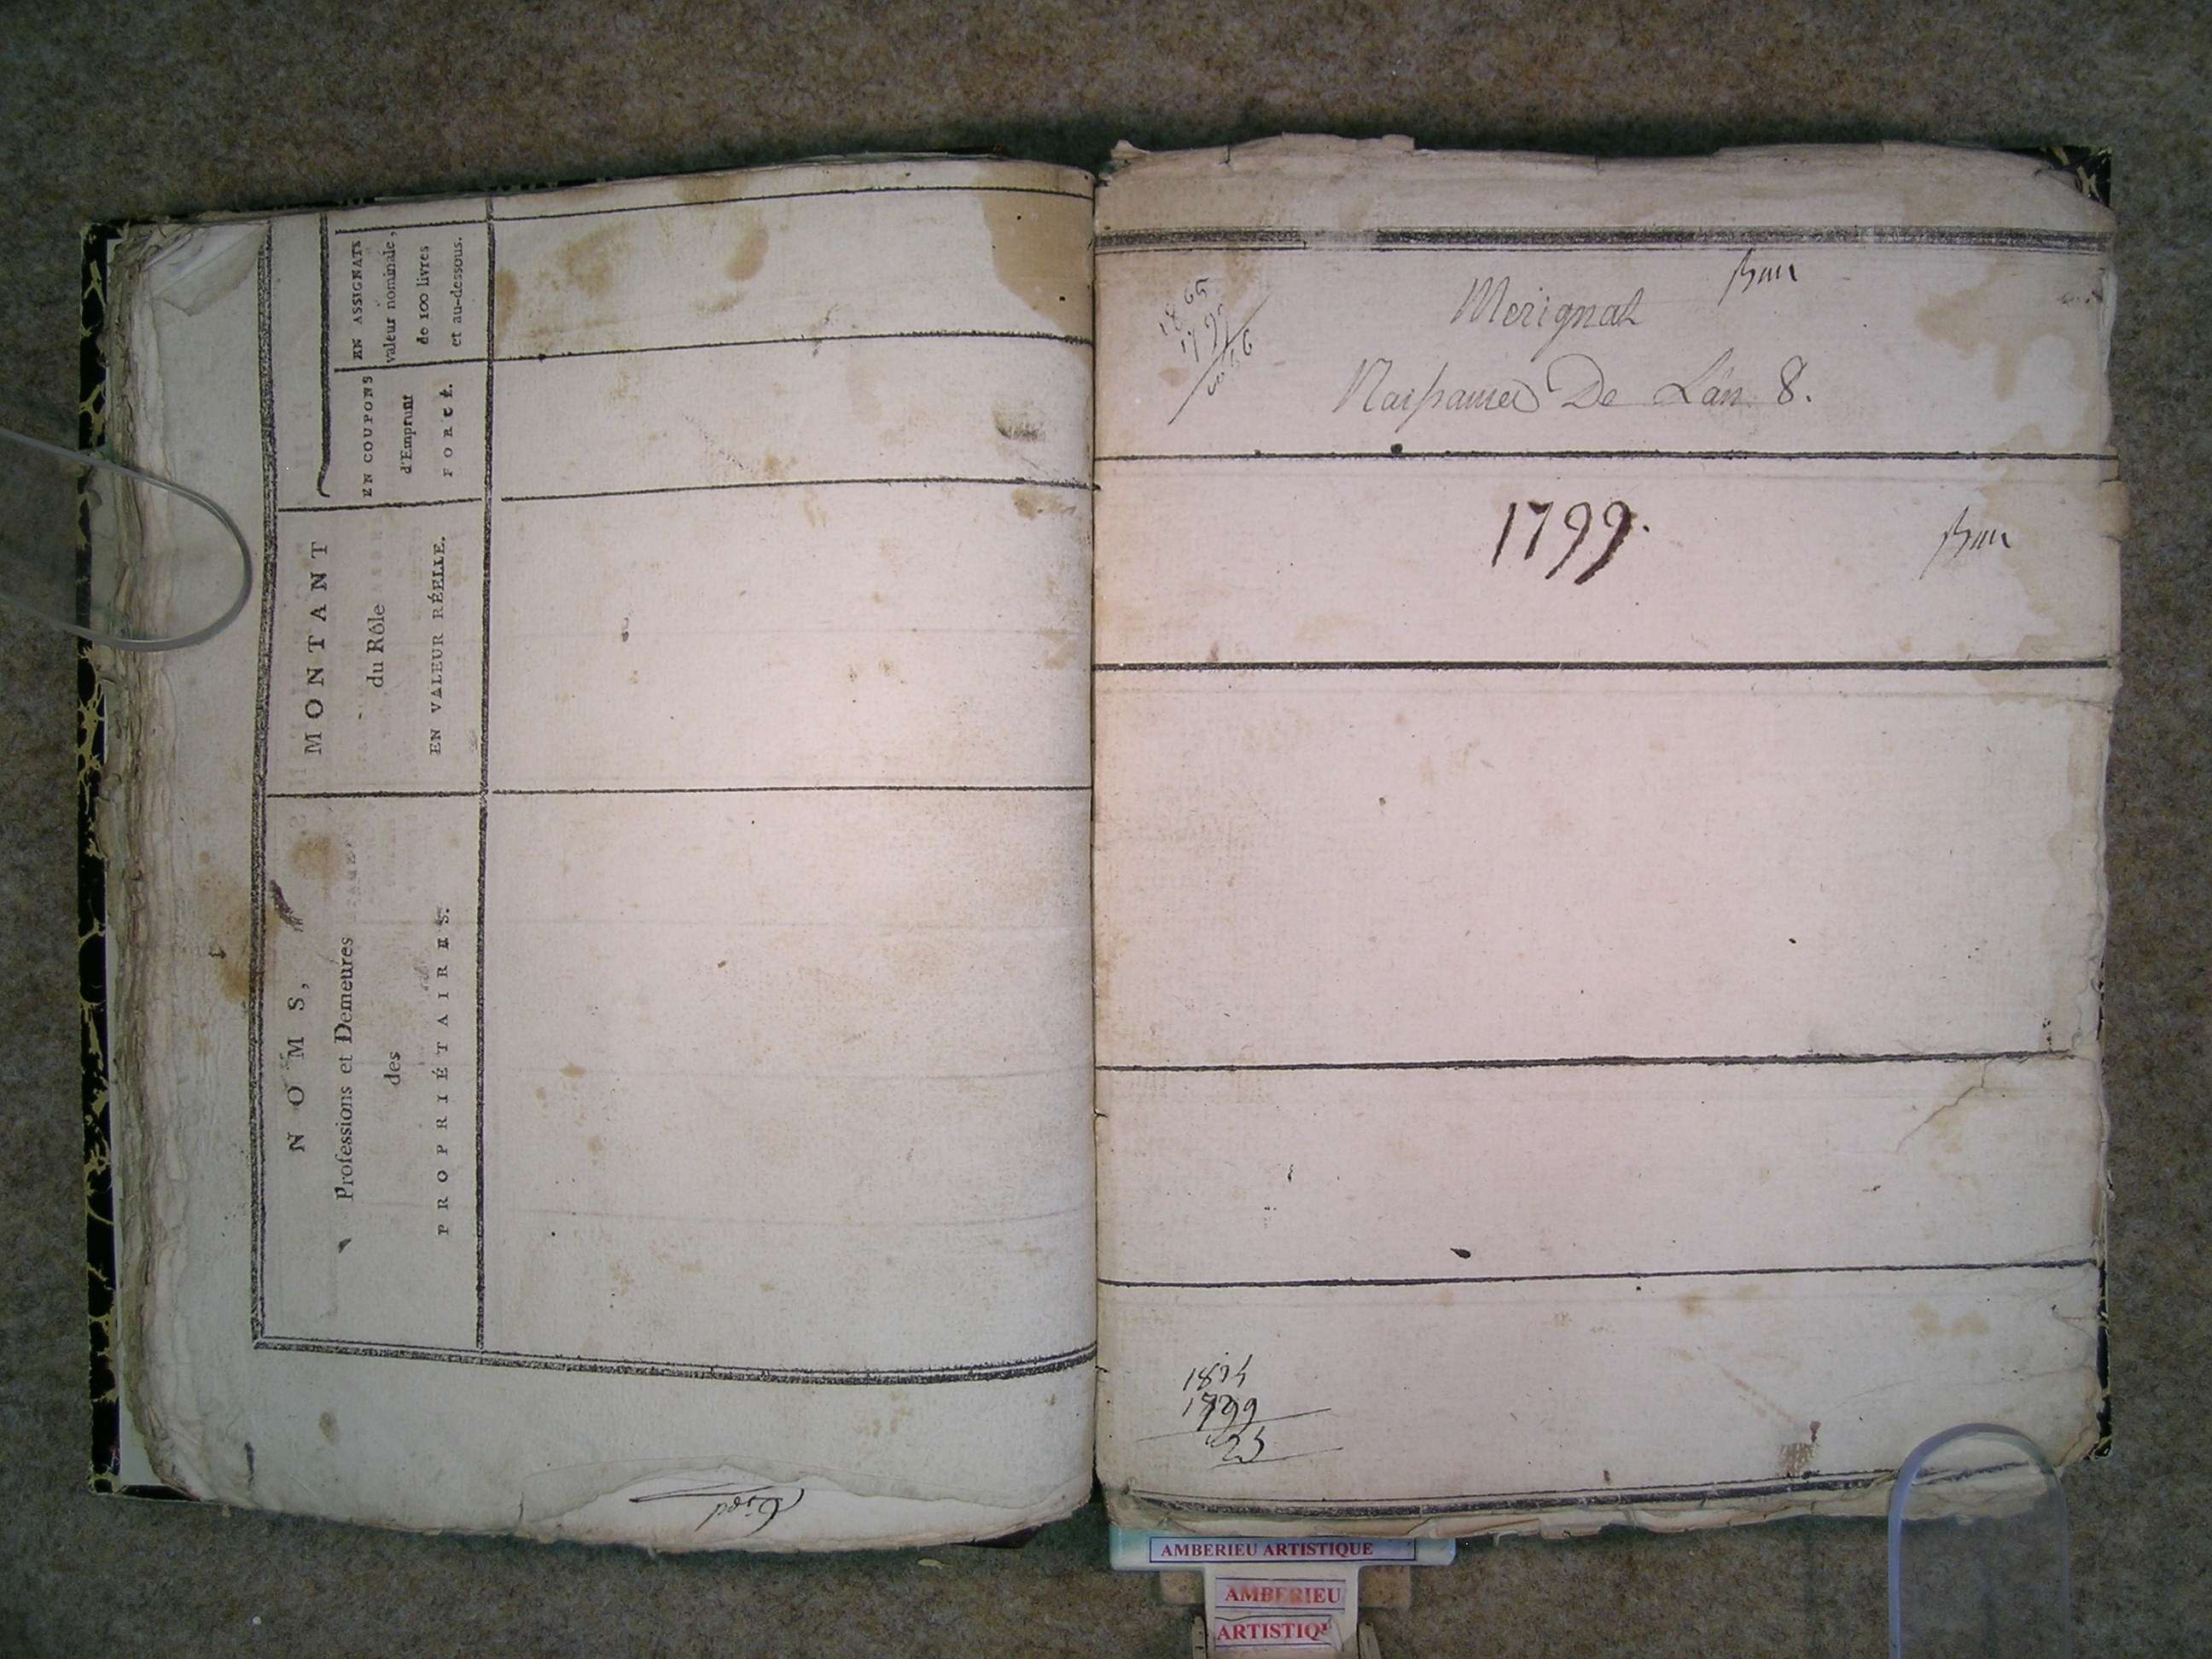 NOMS,
Professions et Demeures
des
PROPRIÉTAIRES.
MONTANT
du Rôle
EN VALEUR RÉELLE.
EN COUPONS
d'Emprunt
FORCÉ.
EN ASSIGNATS
valeur nominale,
de 100 livres
et au-dessous.
Merignat
Naissances De L'an 8.
1799.
1799
25
AMBERIEU ARTISTIQUE
AMBERIEU
ARTISTIQU